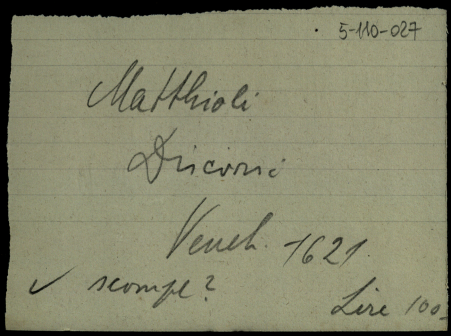 5-110-027
Matthioli
Discorsi
Venet. 1621.
✓ scompl?
Lire 100-